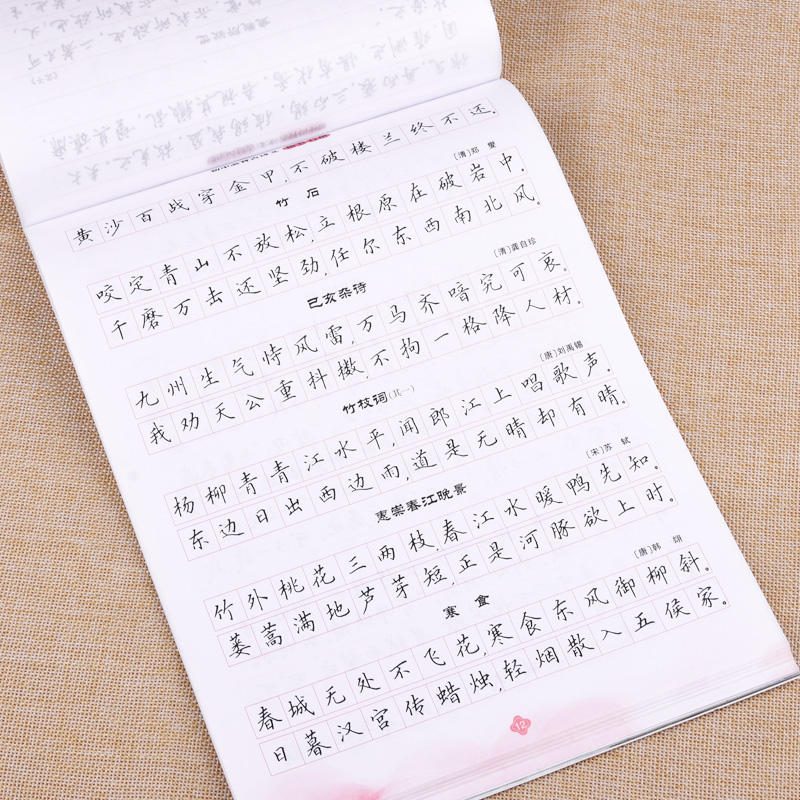 黄沙百战穿金甲,不破楼兰终不还。
竹石
〔清〕郑燮
咬定青山不放松,立根原在破岩中。
千磨万击还坚劲,任尔东西南北风。
己亥杂诗
〔清〕龚自珍
九州生气恃风雷,万马齐喑究可哀。
我劝天公重抖擞,不拘一格降人材。
竹枝词(其一)
〔唐〕刘禹锡
杨柳青青江水平,闻郎江上唱歌声。
东边日出西边雨,道是无晴却有晴。
惠崇春江晚景
〔宋〕苏轼
竹外桃花三两枝,春江水暖鸭先知。
蒌蒿满地芦芽短,正是河豚欲上时。
寒食
〔唐〕韩翃
春城无处不飞花,寒食东风御柳斜。
日暮汉宫传蜡烛,轻烟散入五侯家。
12